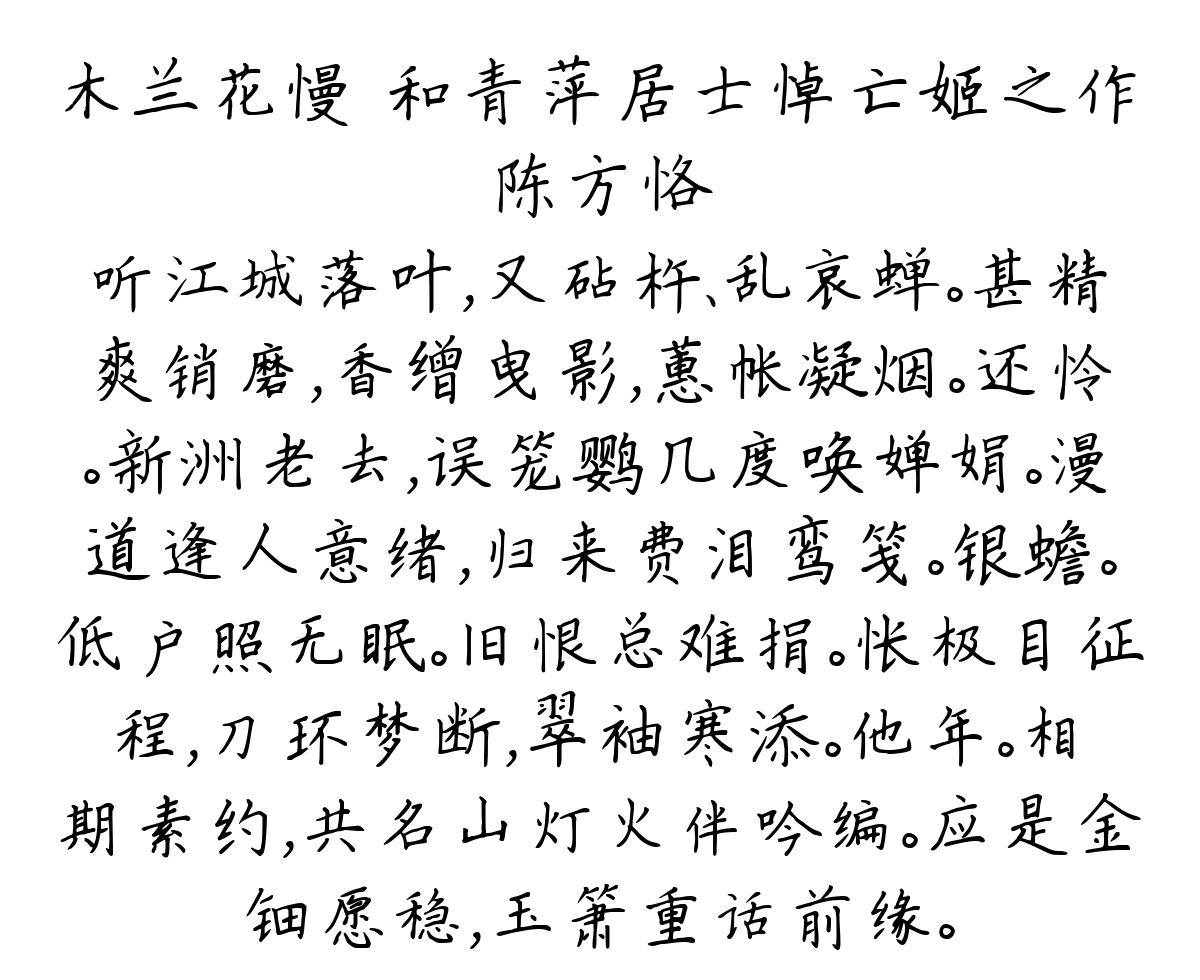 木兰花慢 和青萍居士悼亡姬之作
陈方恪
听江城落叶,又砧杵、乱哀蝉。甚精
爽销磨,香缯曳影,蕙帐凝烟。还怜
。新洲老去,误笼鹦几度唤婵娟。漫
道逢人意绪,归来费泪鸾笺。银蟾。
低户照无眠。旧恨总难捐。怅极目征
程,刀环梦断,翠袖寒添。他年。相
期素约,共名山灯火伴吟编。应是金
钿愿稳,玉箫重话前缘。